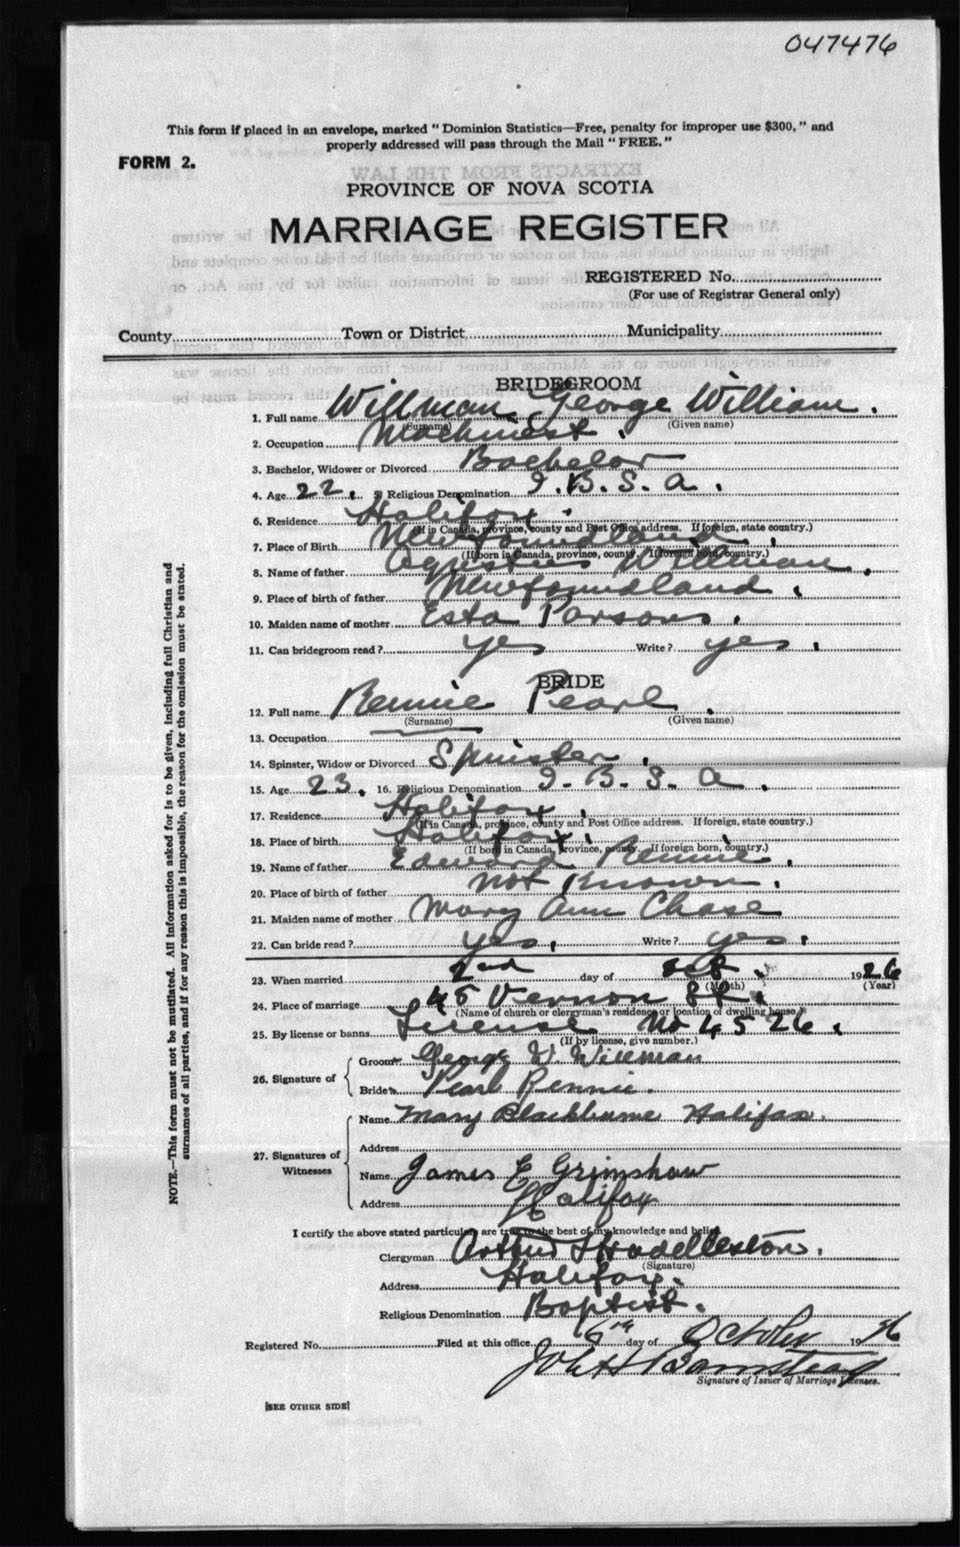 047476
This form if placed in an envelope, marked " Dominion Statistics—Free, penalty for improper use $300, " and
properly addressed will pass through the Mail " FREE. "
FORM 2.
PROVINCE OF NOVA SCOTIA
MARRIAGE REGISTER
REGISTERED No.
(For use of Registrar General only)
County Town or District Municipality
BRIDEGROOM
1. Full name Willman George William.
(Surname) (Given name)
2. Occupation Machinest.
3. Bachelor, Widower or Divorced Bachelor
4. Age 22. 5 Religious Denomination I.B.S.A.
6. Residence Halifax.
(If in Canada, province, county and Post Office address. If foreign, state country.)
7. Place of Birth Newfoundland.
(If born in Canada, province, county. If foreign born, country.)
8. Name of father Agustus Willman.
9. Place of birth of father Newfoundland.
10. Maiden name of mother Esta Parsons.
11. Can bridegroom read? yes Write? yes.
BRIDE
12. Full name Rennie Pearl.
(Surname) (Given name)
13. Occupation
14. Spinster, Widow or Divorced Spinster.
15. Age 23. 16. Religious Denomination I.B.S.A.
17. Residence Halifax.
(If in Canada, province, county and Post Office address. If foreign, state country.)
18. Place of birth Halifax.
(If born in Canada, province, county. If foreign born, country.)
19. Name of father Edward Rennie.
20. Place of birth of father not known.
21. Maiden name of mother Mary Ann Chase
22. Can bride read? yes. Write? yes.
23. When married 2nd day of Oct. 1926
(Month) (Year)
24. Place of marriage 45 Vernon St.
(Name of church or clergyman's residence or location of dwelling house.)
25. By license or banns License No 4526.
(If by license, give number.)
26. Signature of
Groom George W. Willman
Bride Pearl Rennie.
27. Signatures of Witnesses
Name Mary Blackburne Halifax.
Address
Name James E Grimshaw
Address Halifax
I certify the above stated particulars are true to the best of my knowledge and belief.
Clergyman Arthur Huddlestone.
(Signature)
Address Halifax.
Religious Denomination Baptist.
Registered No. Filed at this office 6th day of October 1926
Signature of Issuer of Marriage Licenses.
[SEE OTHER SIDE]
NOTE.—This form must not be mutilated. All information asked for is to be given, including full Christian and
surnames of all parties, and if for any reason this is impossible, the reason for the omission must be stated.